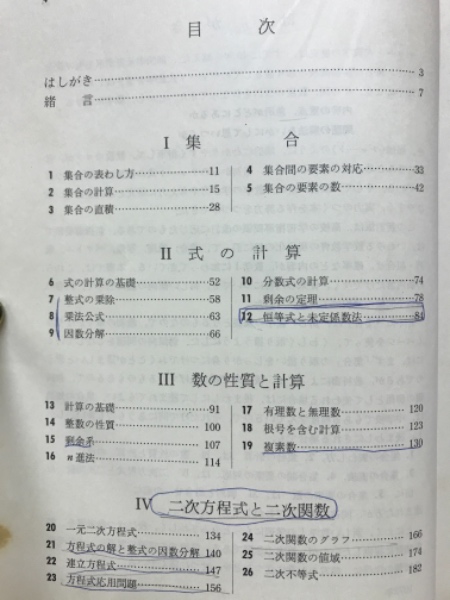 目 次
はしがき 3
緒 言 7
I 集 合
1 集合の表わし方 11
2 集合の計算 15
3 集合の直積 28
4 集合間の要素の対応 33
5 集合の要素の数 42
II 式の計算
6 式の計算の基礎 52
7 整式の乗除 58
8 乗法公式 63
9 因数分解 66
10 分数式の計算 74
11 剰余の定理 78
12 恒等式と未定係数法 84
III 数の性質と計算
13 計算の基礎 91
14 整数の性質 100
15 剰余系 107
16 n進法 114
17 有理数と無理数 120
18 根号を含む計算 123
19 複素数 130
IV 二次方程式と二次関数
20 一元二次方程式 134
21 方程式の解と整式の因数分解 140
22 連立方程式 147
23 方程式応用問題 156
24 二次関数のグラフ 166
25 二次関数の値域 174
26 二次不等式 182